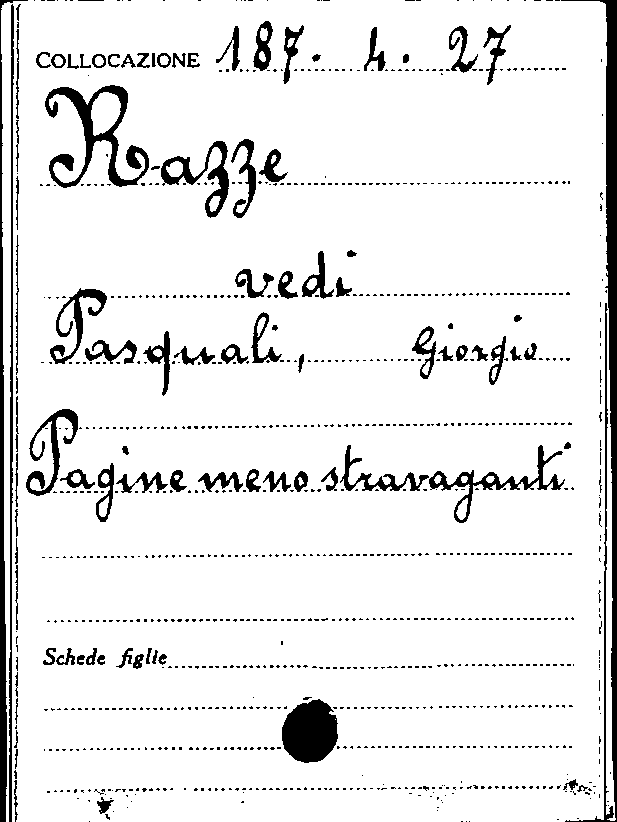 COLLOCAZIONE 187. 4. 27
Razze
vedi
Pasquali, Giorgio
Pagine meno stravaganti
Schede figlie